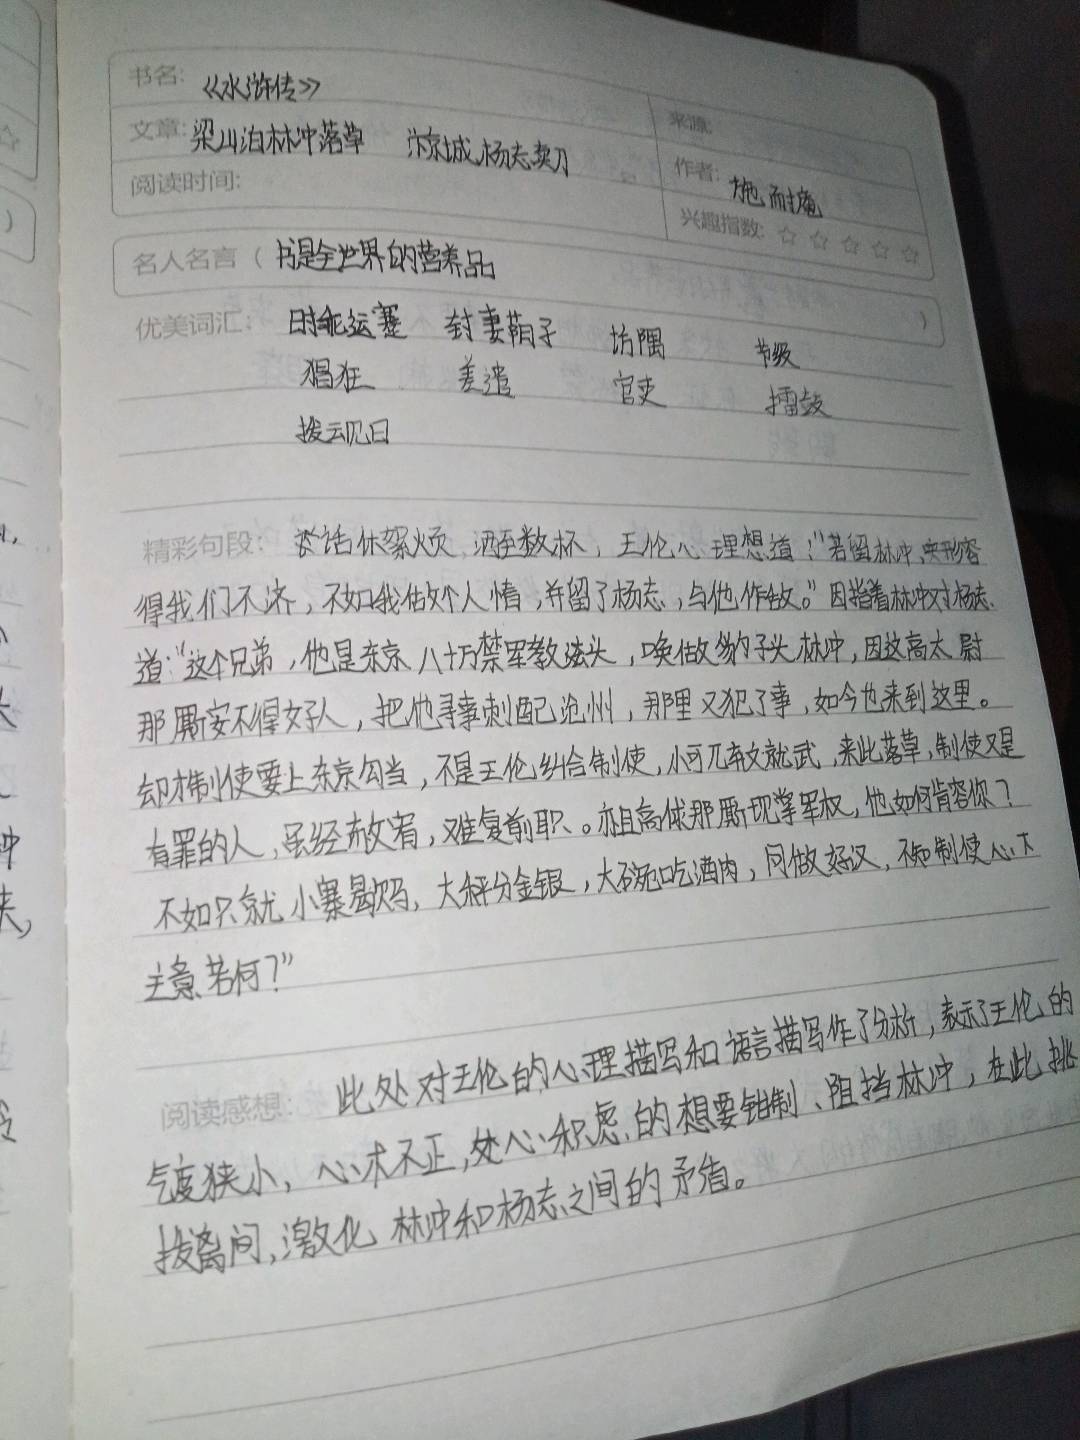 书名: 《水浒传》
来源:
文章: 梁山泊林冲落草 汴京城杨志卖刀
作者: 施耐庵
阅读时间:
兴趣指数: ☆ ☆ ☆ ☆ ☆
名人名言（ 书是全世界的营养品 ）
优美词汇: 时乖运蹇 封妻荫子 坊隅 节级
猖狂 差遣 官吏 擂鼓
拨云见日
精彩句段: 话休絮烦,酒至数杯,王伦心里想道:"若留林冲,实形容
得我们不济,不如我做个人情,并留了杨志,与他作敌。"因指着林冲对杨志
道:"这个兄弟,他是东京八十万禁军教头,唤做豹子头林冲,因这高太尉
那厮安不得好人,把他寻事刺配沧州,那里又犯了事,如今也来到这里。
却才制使要上东京勾当,不是王伦纠合制使,小可兀弃文就武,来此落草,制使又是
有罪的人,虽经赦宥,难复前职。亦且高俅那厮现掌军权,他如何肯容你?
不如只就小寨歇马,大秤分金银,大碗吃酒肉,同做好汉,不知制使心下
主意若何?"
阅读感想: 此处对王伦的心理描写和语言描写作了分析,表示了王伦的
气度狭小,心术不正,处心积虑的想要钳制、阻挡林冲,在此挑
拨离间,激化林冲和杨志之间的矛盾。